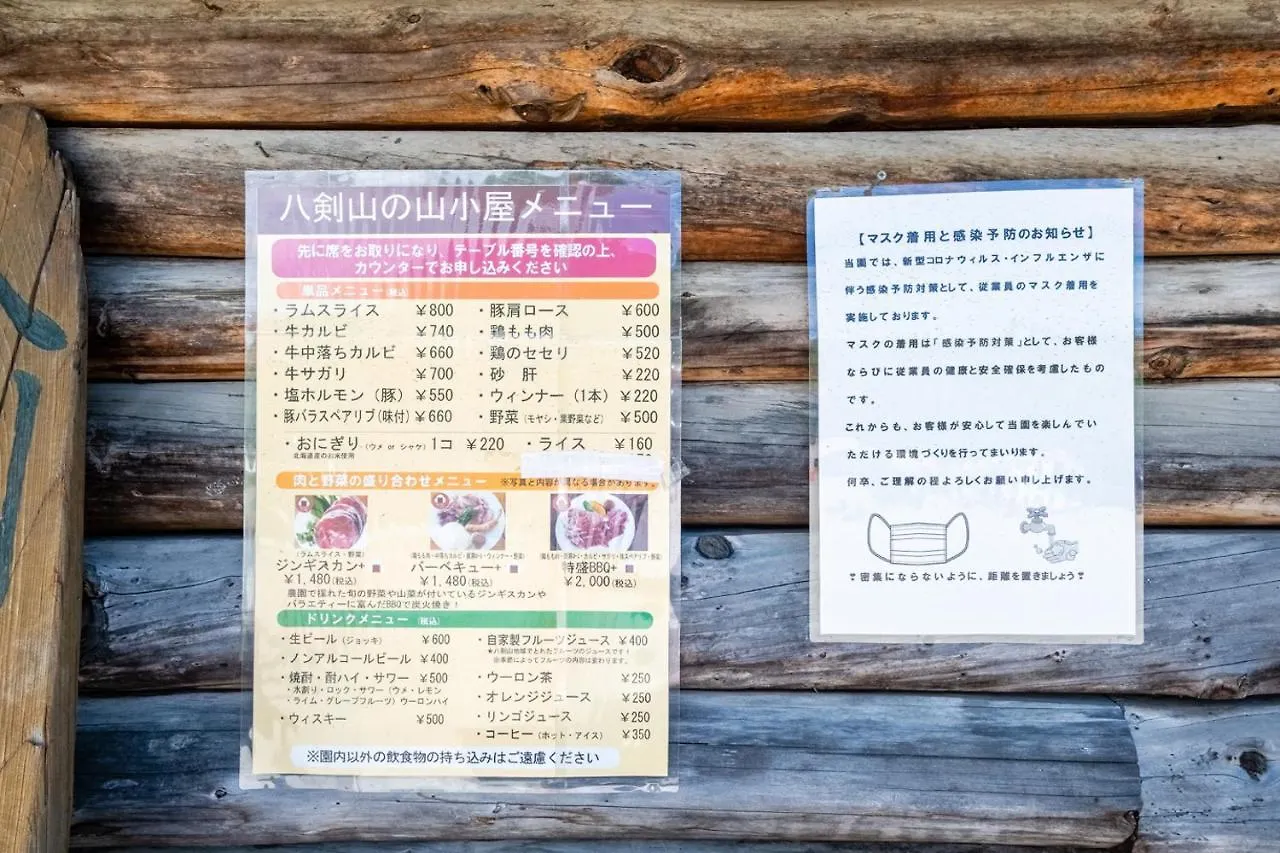 八剣山の山小屋メニュー
先に席をお取りになり、テーブル番号を確認の上、
カウンターでお申し込みください
単品メニュー(税込)
・ラムスライス ￥800
・牛カルビ ￥740
・牛中落ちカルビ ￥660
・牛サガリ ￥700
・塩ホルモン（豚） ￥550
・豚バラスペアリブ(味付) ￥660
・豚肩ロース ￥600
・鶏もも肉 ￥500
・鶏のセセリ ￥520
・砂 肝 ￥220
・ウィンナー（1本） ￥220
・野菜（モヤシ・葉野菜など） ￥500
・おにぎり（ウメ or シャケ）1コ ￥220
北海道産のお米使用
・ライス ￥160
肉と野菜の盛り合わせメニュー ※写真と内容が異なる場合があります。
（ラムスライス・野菜）
ジンギスカン+
￥1,480(税込)
バーベキュー+
￥1,480(税込)
特盛BBQ+
￥2,000(税込)
農園で採れた旬の野菜や山菜が付いているジンギスカンや
バラエティーに富んだBBQで炭火焼き！
ドリンクメニュー (税込)
・生ビール（ジョッキ） ￥600
・ノンアルコールビール ￥400
・焼酎・酎ハイ・サワー ￥500
・水割り・ロック・サワー（ウメ・レモン
・ライム・グレープフルーツ）ウーロンハイ
・ウィスキー ￥500
・自家製フルーツジュース ￥400
★八剣山地域でとれたフルーツのジュースです！
※季節によってフルーツの内容は変わります。
・ウーロン茶 ￥250
・オレンジジュース ￥250
・リンゴジュース ￥250
・コーヒー（ホット・アイス） ￥350
※園内以外の飲食物の持ち込みはご遠慮ください
【マスク着用と感染予防のお知らせ】
当園では、新型コロナウィルス・インフルエンザに
伴う感染予防対策として、従業員のマスク着用を
実施しております。
マスクの着用は「感染予防対策」として、お客様
ならびに従業員の健康と安全確保を考慮したもの
です。
これからも、お客様が安心して当園を楽しんでい
ただける環境づくりを行ってまいります。
何卒、ご理解の程よろしくお願い申し上げます。
密集にならないように、距離を置きましょう